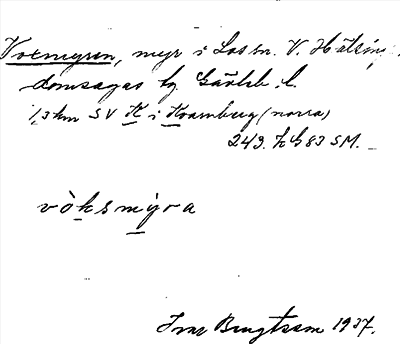 Voxmyren, myr i Los sn. V. Hälsing.
domsagas tg. Gävleb. l.
1,3 km SV K i Kvarnberg (norra)
243. h G 83 SM.
vòksmýra
Ivar Bengtsson 1937.